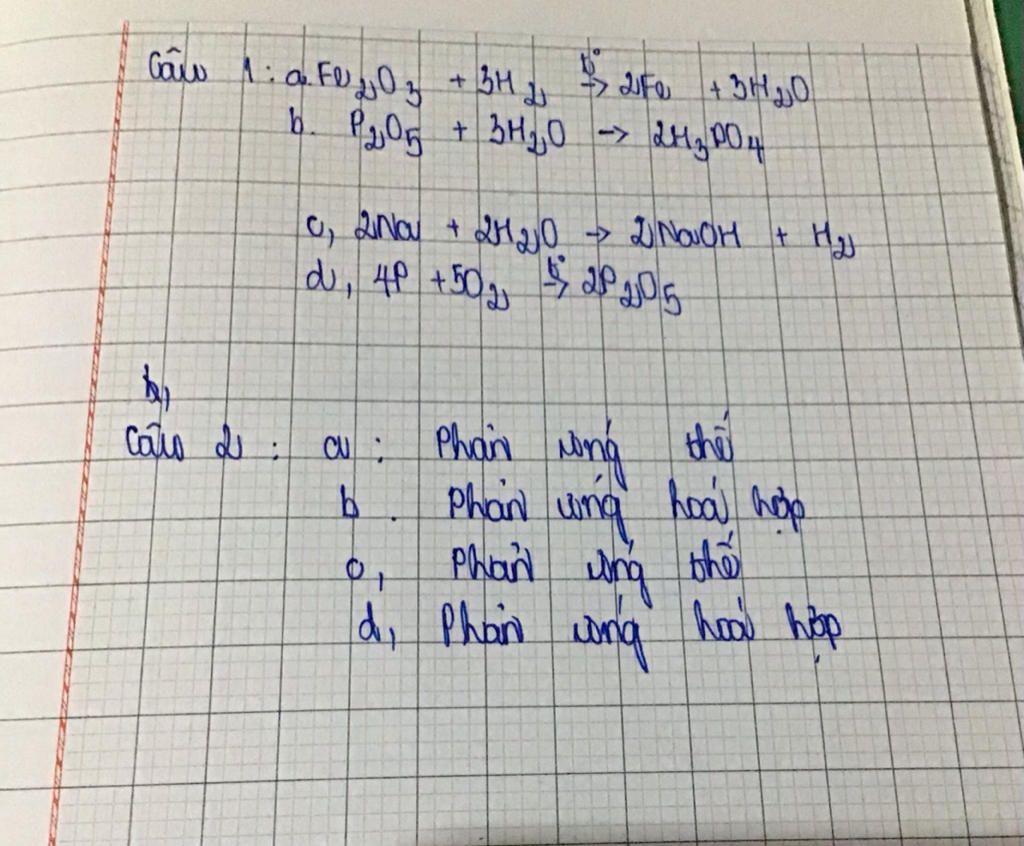 Câu 1 : a. Fe₂O₃ + 3H₂ →(t°) 2Fe + 3H₂O
b. P₂O₅ + 3H₂O → 2H₃PO₄
c, 2Na + 2H₂O → 2NaOH + H₂
d, 4P + 5O₂ →(t°) 2P₂O₅
b,
Câu 2 : a : Phản ứng thế
b . Phản ứng hoá hợp
c, Phản ứng thế
d, Phản ứng hoá hợp